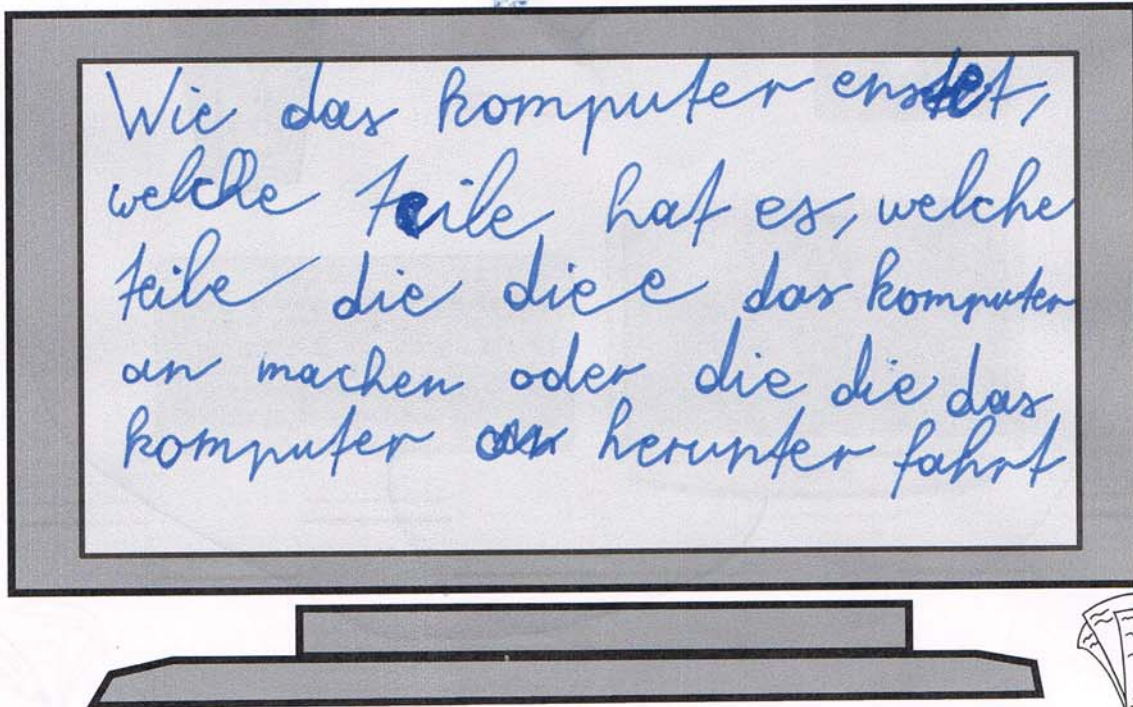 Wie das komputer enstet,
welche teile hat es, welche
teile die die e das komputer
an machen oder die die das
komputer herunter fahrt